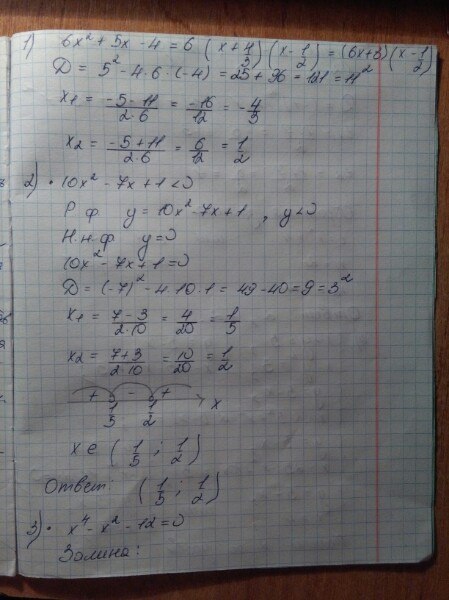 1) 6x² + 5x - 4 = 6 (x + 4/3) (x - 1/2) = (6x+8)(x - 1/2)
D = 5² - 4·6·(-4) = 25 + 96 = 121 = 11²
x1 = (-5-11)/(2·6) = -16/12 = -4/3
x2 = (-5+11)/(2·6) = 6/12 = 1/2
2) • 10x² - 7x + 1 < 0
Р.ф. y = 10x² - 7x + 1, y < 0
Н.н.ф y = 0
10x² - 7x + 1 = 0
D = (-7)² - 4·10·1 = 49 - 40 = 9 = 3²
x1 = (7-3)/(2·10) = 4/20 = 1/5
x2 = (7+3)/(2·10) = 10/20 = 1/2
+ - +
1/5 1/2 x
x ∈ (1/5 ; 1/2)
Ответ: (1/5 ; 1/2)
3) • x⁴ - x² - 12 = 0
Заміна: